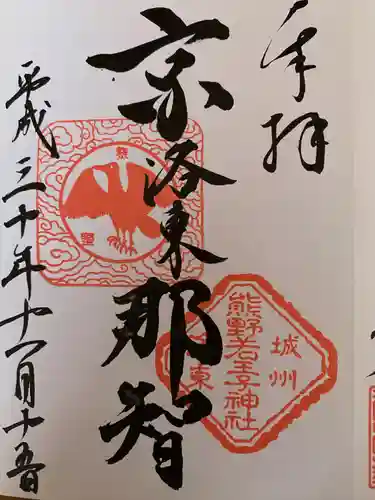 奉拝
京洛東那智
平成三十年十一月十五日
城州
熊野若王子神社
東